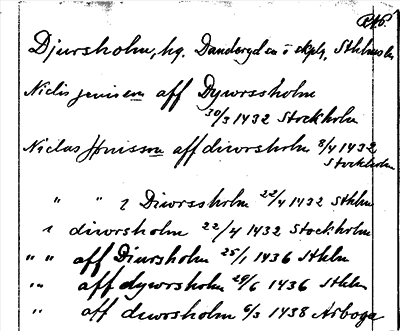 RAP.
Djursholm, hg. Danderyd en ö skpl, Sthlms län
Niclis jenisson aff Dyworssholm
30/3 1432 Stockholm
Niclas Jönisson aff diworsholm 8/4 1432
Stockholm
" " i Diworssholm 22/4 1432 Sthlm
i diworsholm 22/4 1432 Stockholm
" " aff Diursholm 25/1 1436 Sthlm
" aff dyworsholm 29/6 1436 Sthlm
" aff diwrsholm 6/3 1438 Arboga